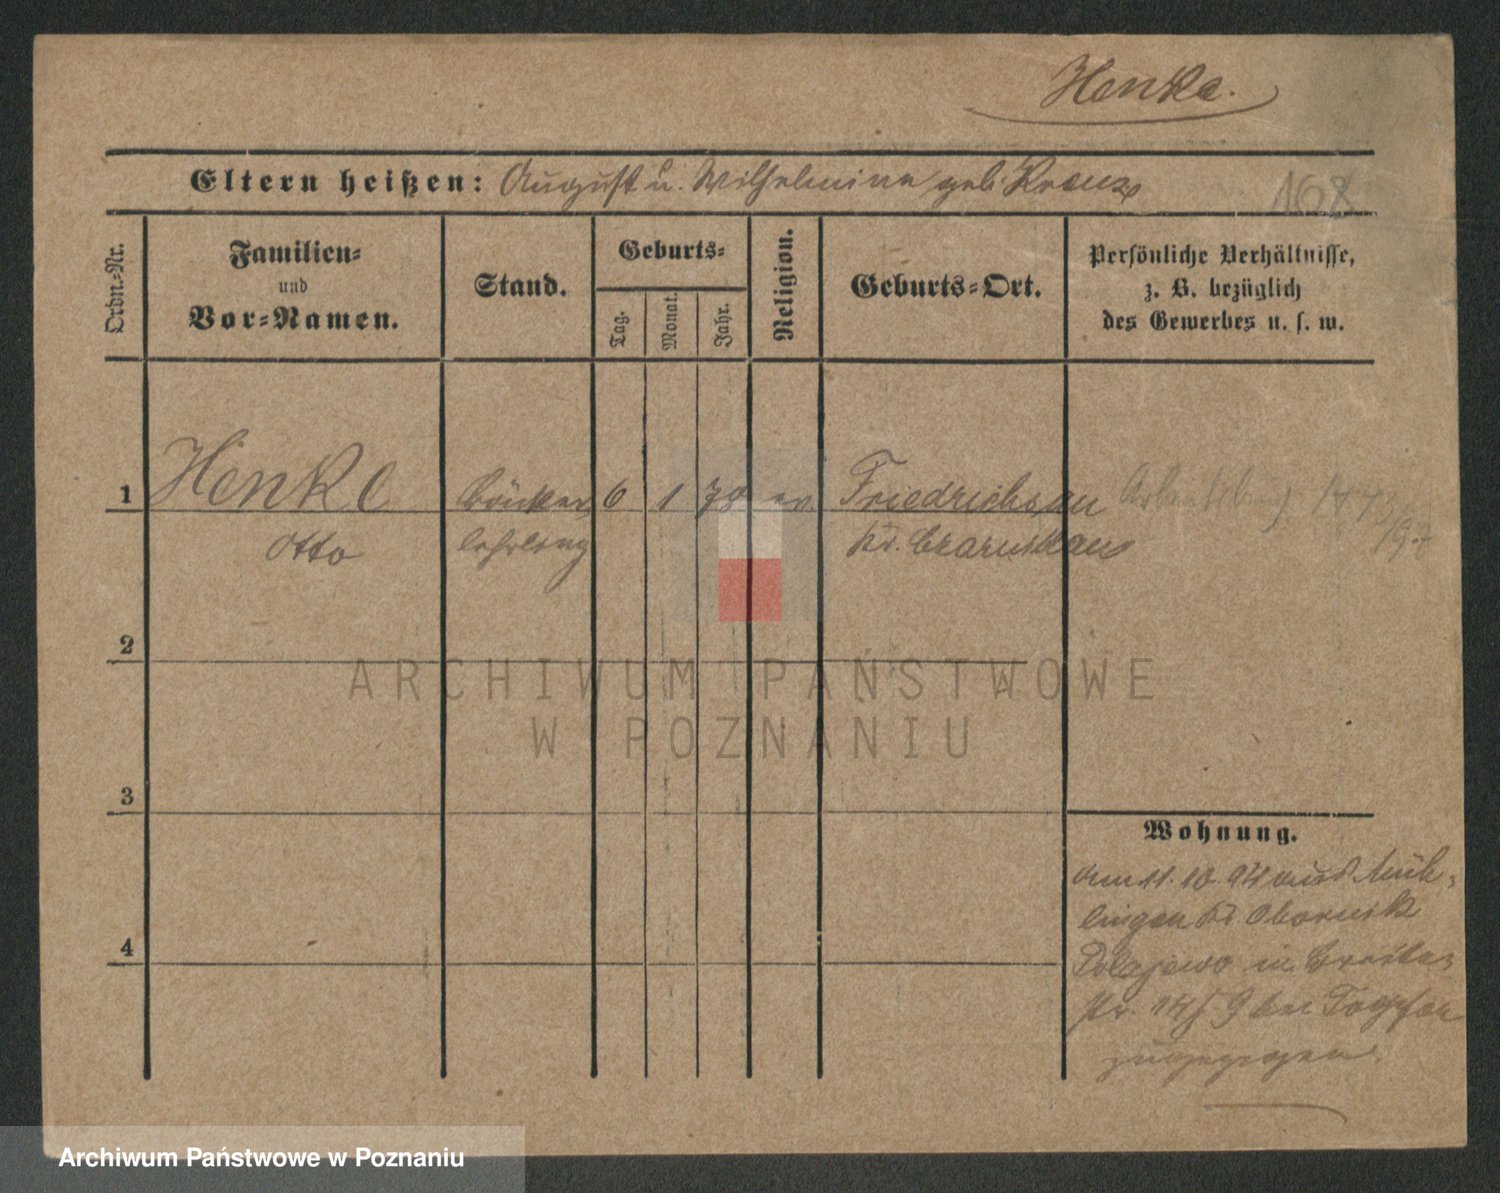 Henke.
Eltern heißen: August u. Wilhelmine geb. Kranz
168
Ordn.-Nr.
Familien-
und
Vor-Namen.
Stand.
Geburts-
Tag.
Monat.
Jahr.
Religion.
Geburts-Ort.
Persönliche Verhältnisse,
z. B. bezüglich
des Gewerbes u. s. w.
1 Henke Bäcker 6 1 78 ev Friedrichsau Arbeitsbuch 1443
Otto lehrling Kr. Czarnikau
2
3
4
Wohnung.
am 11. 10. 94 aus
lingen Kr. Obornik
Polajewo in Breite-
str. 14/ 9 bei
zugezogen.
ARCHIWUM PAŃSTWOWE
W POZNANIU
Archiwum Państwowe w Poznaniu